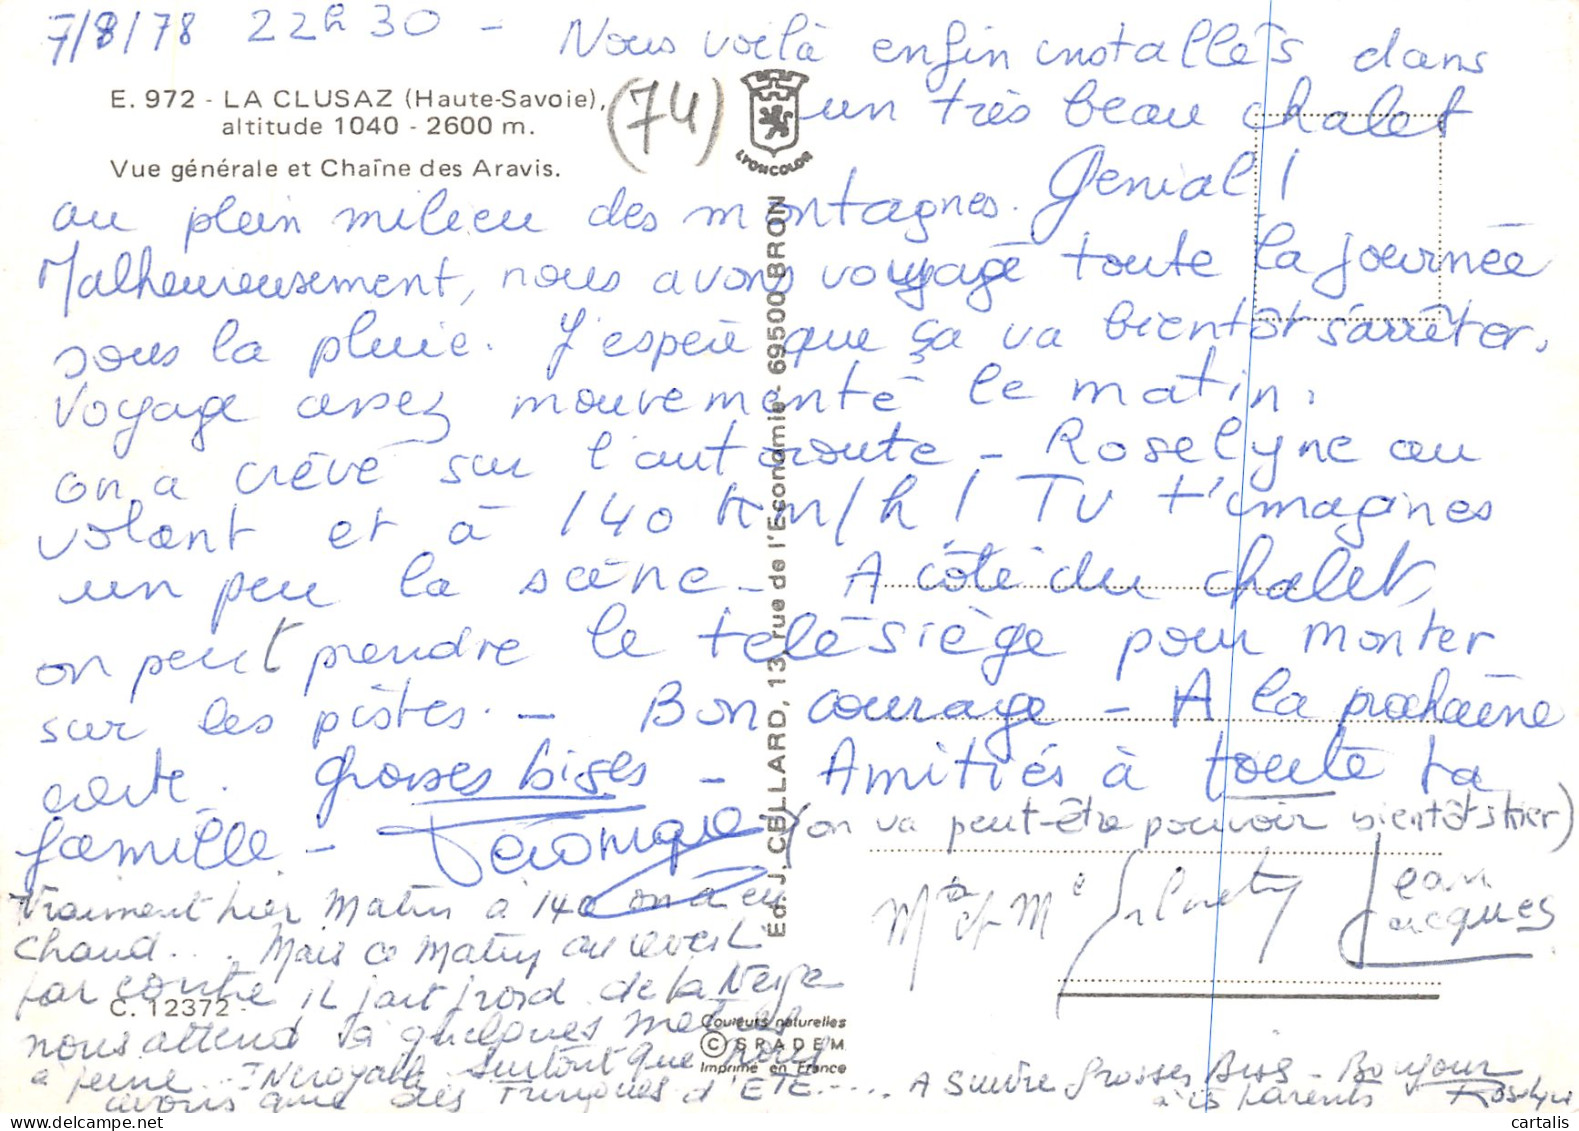 7/8/78 22h30 - Nous voilà enfin installés dans
E. 972 - LA CLUSAZ (Haute-Savoie),
altitude 1040 - 2600 m.
Vue générale et Chaîne des Aravis.
(74)
LYONCOLOR
un très beau chalet
au plein milieu des montagnes. Génial!
Malheureusement, nous avons voyagé toute la journée
sous la pluie. J'espère que ça va bientôt s'arrêter.
Voyage assez mouvementé le matin.
on a crévé sur l'autoroute - Roselyne au
volant et à 140 km/h! Tu t'imagines
un peu la scène - A côté du chalet,
on peut prendre le télésiège pour monter
sur les pistes. - Bon courage - A la prochaine
carte. Grosses bises - Amitiés à toute ta
famille - Véronique (on va peut-être pouvoir bientôt skier)
Jean
Jacques
Vraiment hier Matin à 140 on a eu
chaud... Mais ce matin au réveil
par contre il fait froid. de la Neige
nous attend à quelques mètres
à peine... INcroyable surtout que nous
avions que des Fringues d'ETE.... A Suivre Grosses Bises - Bonjour
à tes parents Roselyne
Éd. J. CELLARD, 13, rue de l'Economie - 69500 BRON
C. 12372
Couleurs naturelles
© SPADEM
Imprimé en France
cartalis